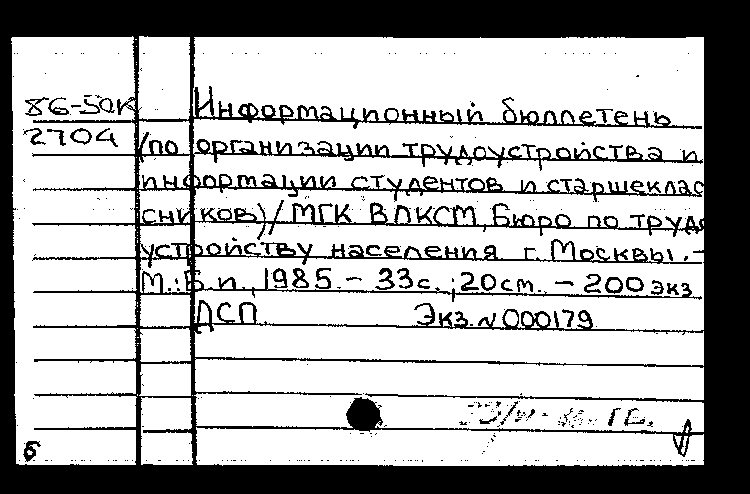 86-50К Информационный бюллетень
2704 (по организации трудоустройства и
информации студентов и старшеклас
сников) / МГК ВЛКСМ, Бюро по трудо
устройству населения г. Москвы. -
М.: Б.и., 1985. - 33с.; 20см. - 200 экз
ДСП Экз. N 000179
Б